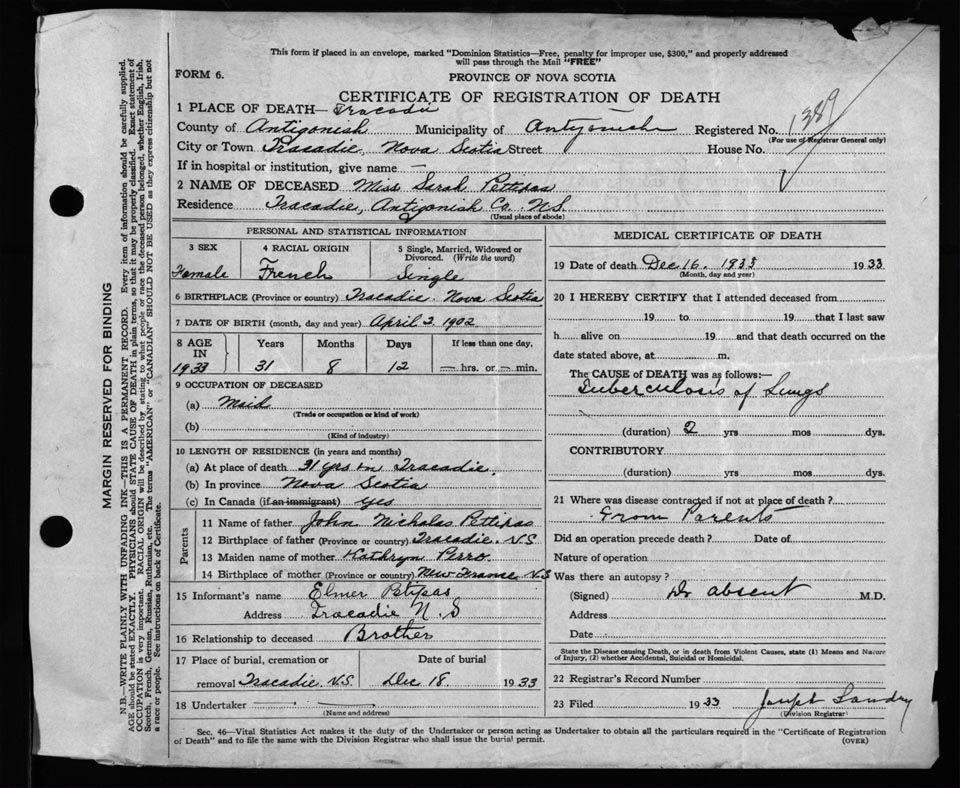 This form if placed in an envelope, marked "Dominion Statistics—Free, penalty for improper use, $300," and properly addressed
will pass through the Mail "FREE"
FORM 6.
PROVINCE OF NOVA SCOTIA
CERTIFICATE OF REGISTRATION OF DEATH
1389
1 PLACE OF DEATH— Tracadie
County of Antigonish Municipality of Antigonish Registered No.
(For use of Registrar General only)
City or Town Tracadie, Nova Scotia Street House No.
If in hospital or institution, give name —
2 NAME OF DECEASED Miss Sarah Pettipas
Residence Tracadie, Antigonish Co. N.S
(Usual place of abode)
PERSONAL AND STATISTICAL INFORMATION
3 SEX 4 RACIAL ORIGIN 5 Single, Married, Widowed or
Divorced. (Write the word)
Female French Single
6 BIRTHPLACE (Province or country) Tracadie Nova Scotia
7 DATE OF BIRTH (month, day and year) April 2. 1902
8 AGE Years Months Days If less than one day,
IN
1933 31 8 12 — hrs. or — min.
9 OCCUPATION OF DECEASED
(a) Maid
(Trade or occupation or kind of work)
(b)
(Kind of industry)
10 LENGTH OF RESIDENCE (in years and months)
(a) At place of death 31 yrs in Tracadie.
(b) In province Nova Scotia
(c) In Canada (if an immigrant) yes
Parents
11 Name of father John Nicholas Pettipas
12 Birthplace of father (Province or country) Tracadie. N.S
13 Maiden name of mother Kathryn Perro.
14 Birthplace of mother (Province or country) New France N.S
15 Informant's name Elmer Petipas
Address Tracadie N.S
16 Relationship to deceased Brother
17 Place of burial, cremation or Date of burial
removal Tracadie. N.S. Dec 18 1933
18 Undertaker
(Name and address)
MEDICAL CERTIFICATE OF DEATH
19 Date of death Dec 16. 1933 1933
(Month, day and year)
20 I HEREBY CERTIFY that I attended deceased from
19 to 19 that I last saw
h alive on 19 and that death occurred on the
date stated above, at m.
The CAUSE of DEATH was as follows:—
Tuberculosis of Lungs
(duration) 2 yrs mos dys.
CONTRIBUTORY
(duration) yrs mos dys.
21 Where was disease contracted if not at place of death?
From Parents
Did an operation precede death? Date of
Nature of operation
Was there an autopsy?
(Signed) Dr absent M.D.
Address
Date
State the Disease causing Death, or in death from Violent Causes, state (1) Means and Nature
of Injury, (2) whether Accidental, Suicidal or Homicidal.
22 Registrar's Record Number
23 Filed 1933 Joseph Landry
(Division Registrar)
Sec. 46—Vital Statistics Act makes it the duty of the Undertaker or person acting as Undertaker to obtain all the particulars required in the "Certificate of Registration
of Death" and to file the same with the Division Registrar who shall issue the burial permit.
(OVER)
MARGIN RESERVED FOR BINDING
N.B.—WRITE PLAINLY WITH UNFADING INK—THIS IS A PERMANENT RECORD. Every item of information should be carefully supplied.
AGE should be stated EXACTLY. PHYSICIANS should STATE CAUSE OF DEATH in plain terms, so that it may be properly classified. Exact statement of
OCCUPATION is very important. RACIAL ORIGIN will be described by stating to what people or race the deceased person belonged, whether English, Irish,
Scotch, French, German, Russian, Ruthenian, etc. The terms "AMERICAN" or "CANADIAN" SHOULD NOT BE USED as they express citizenship but not
a race or people. See instructions on back of Certificate.